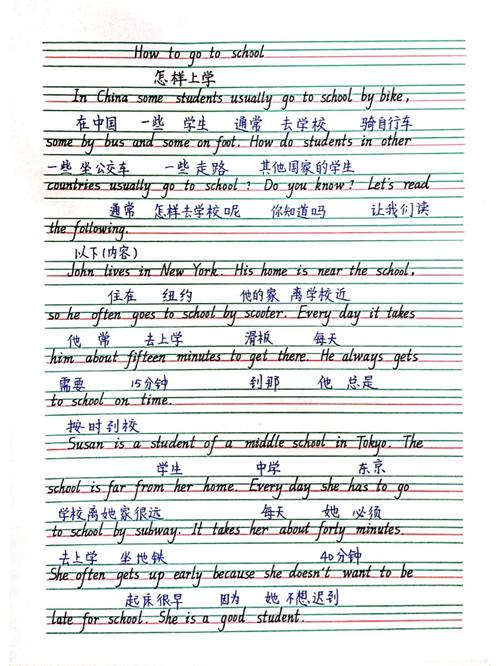 How to go to school
怎样上学
In China some students usually go to school by bike,
在中国 一些 学生 通常 去学校 骑自行车
some by bus and some on foot. How do students in other
一些 坐公交车 一些 走路 其他国家的学生
countries usually go to school? Do you know? Let's read
通常 怎样去学校呢 你知道吗 让我们读
the following.
以下(内容)
John lives in New York. His home is near the school,
住在 纽约 他的家 离学校近
so he often goes to school by scooter. Every day it takes
他 常 去上学 滑板 每天
him about fifteen minutes to get there. He always gets
需要 15分钟 到那 他 总是
to school on time.
按时到校
Susan is a student of a middle school in Tokyo. The
学生 中学 东京
school is far from her home. Every day she has to go
学校离她家很远 每天 她 必须
to school by subway. It takes her about forty minutes.
去上学 坐地铁 40分钟
She often gets up early because she doesn't want to be
起床很早 因为 她 不想迟到
late for school. She is a good student.